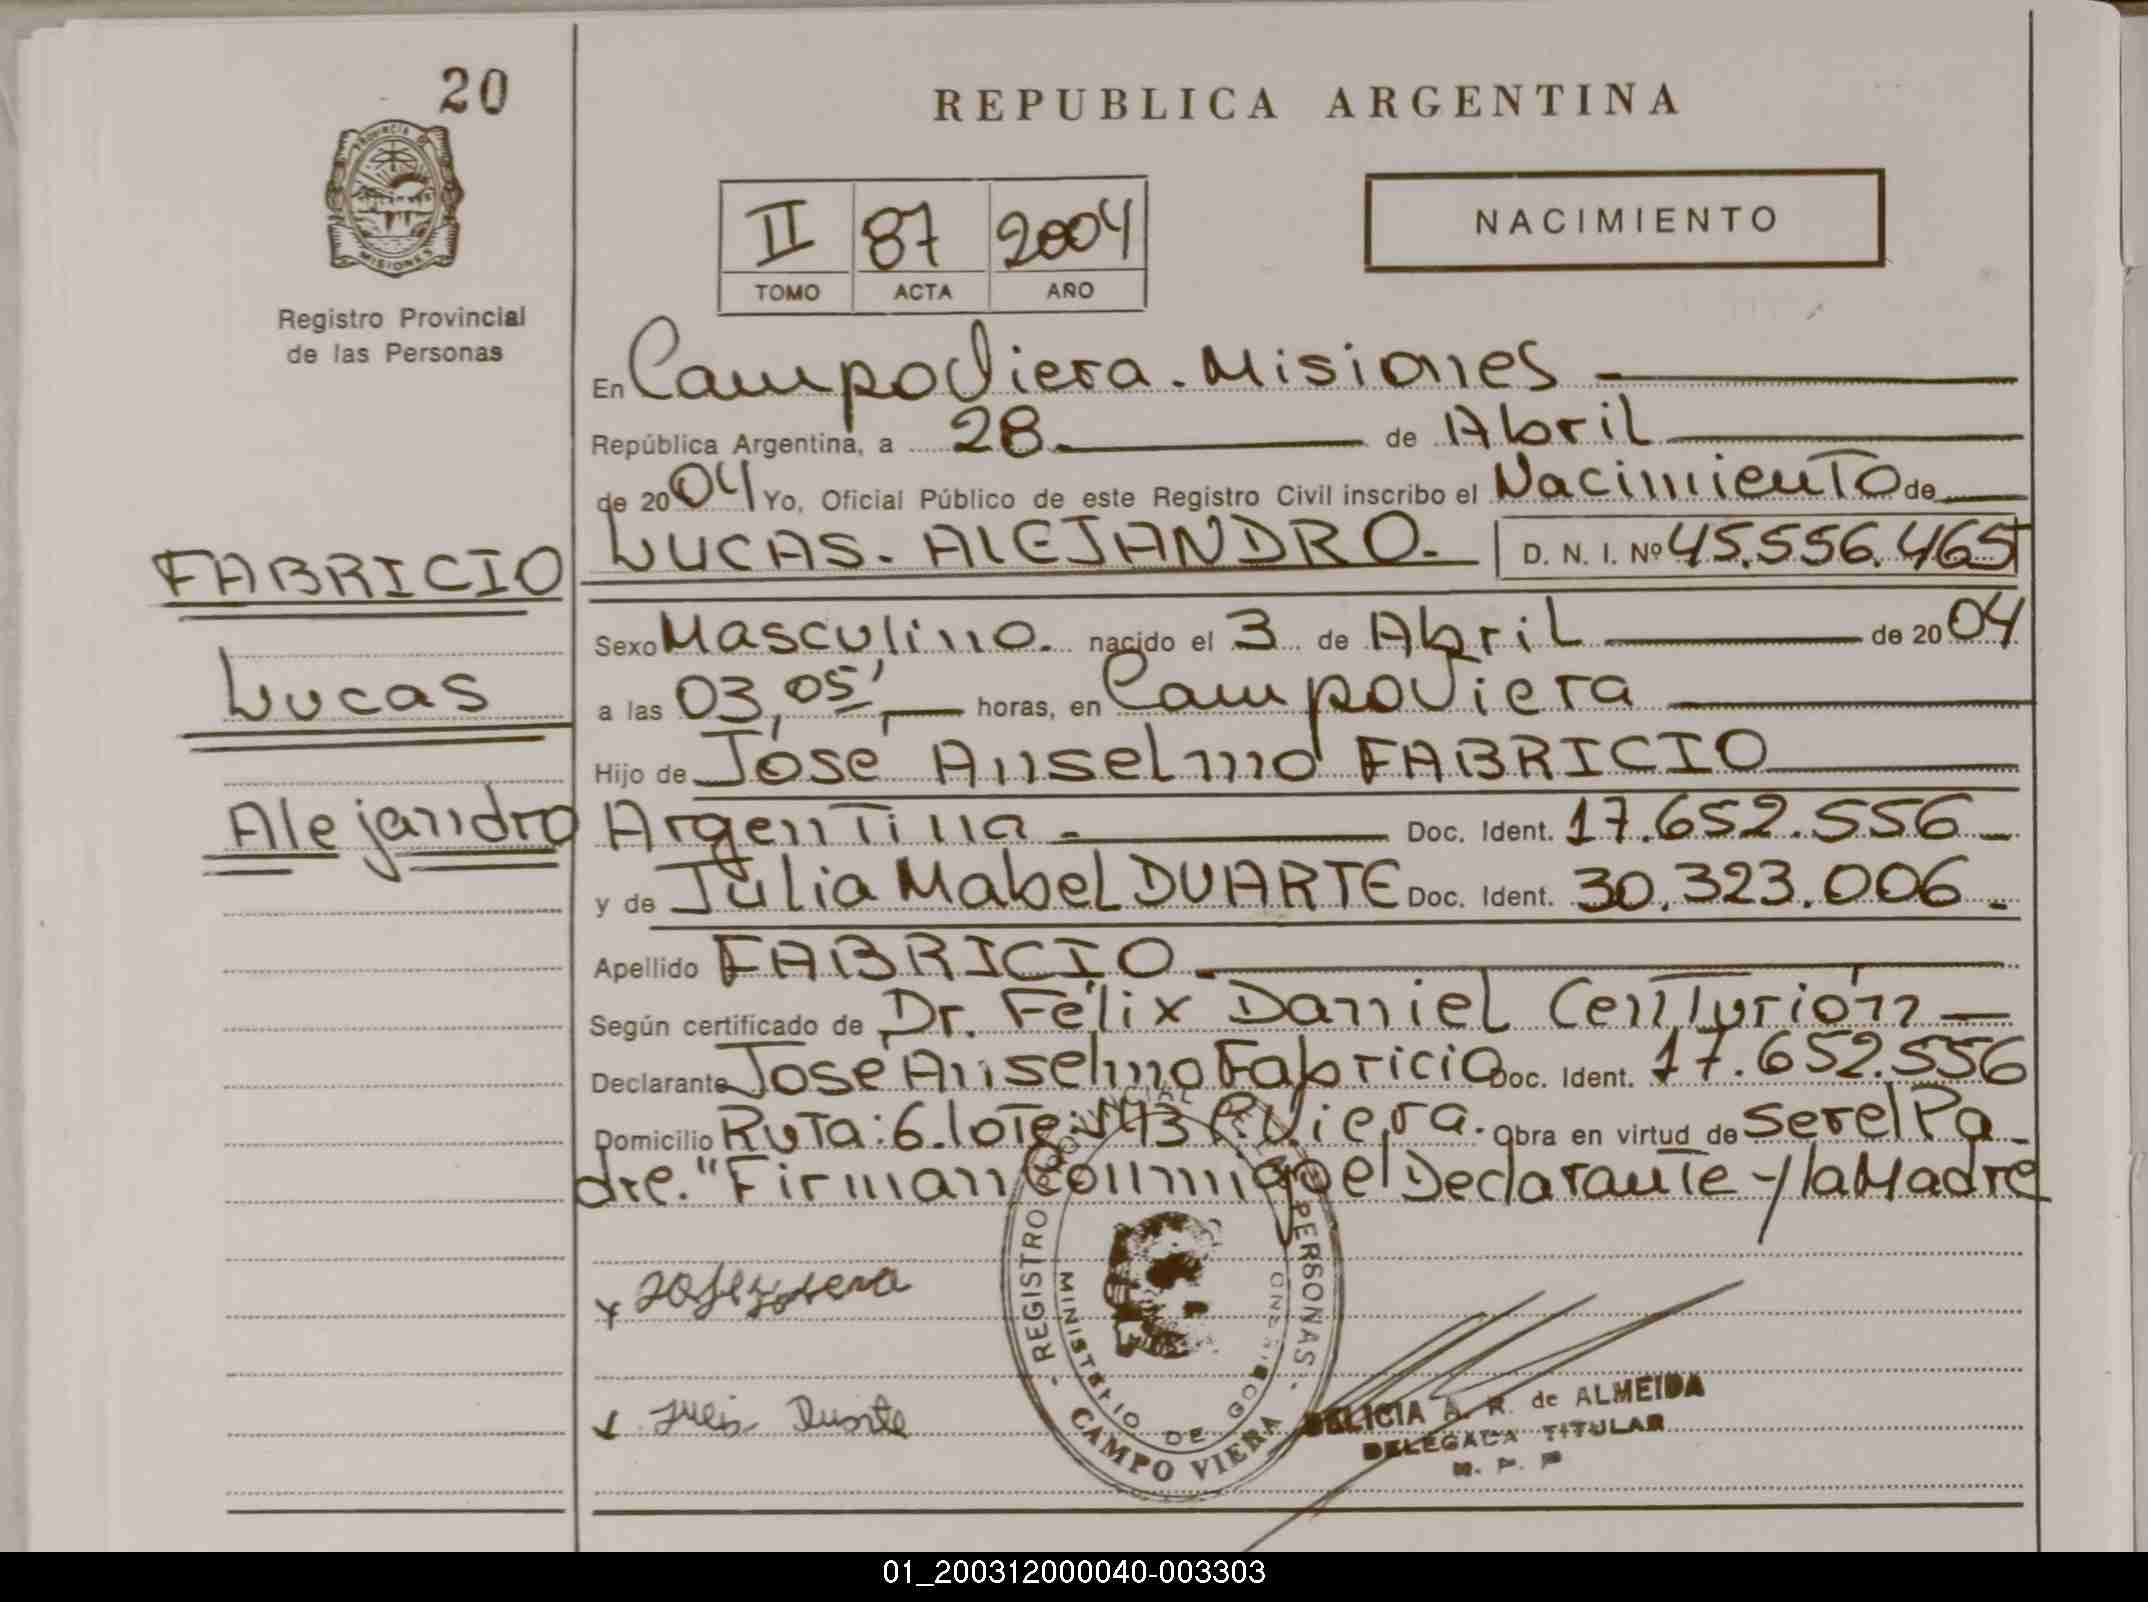 20
REPUBLICA ARGENTINA
PROVINCIA DE
MISIONES
Registro Provincial
de las Personas
NACIMIENTO
II 87 2004
TOMO ACTA AÑO
En Campo Viera. Misiones
República Argentina, a 28 de Abril
de 2004 Yo, Oficial Público de este Registro Civil inscribo el Nacimiento de
FABRICIO
LUCAS. ALEJANDRO. D. N. I. Nº 45.556.465
Sexo Masculino. nacido el 3 de Abril de 2004
Lucas
a las 03,05' horas, en Campo Viera
Hijo de José Anselmo FABRICIO
Alejandro
Argentina. Doc. Ident. 17.652.556
y de Julia Mabel DUARTE Doc. Ident. 30.323.006.
Apellido FABRICIO
Según certificado de Dr. Félix Daniel Centurión
Declarante José Anselmo Fabricio Doc. Ident. 17.652.556
Domicilio Ruta: 6. lote: 143 C. Viera. Obra en virtud de ser el Pa
dre. "Firman conmigo el Declarante y la Madre
Julia Duarte
REGISTRO PROVINCIAL PERSONAS
MINISTERIO DE GOBIERNO
CAMPO VIERA
DELICIA A. R. de ALMEIDA
DELEGADA TITULAR
R. P. P
01_200312000040-003303